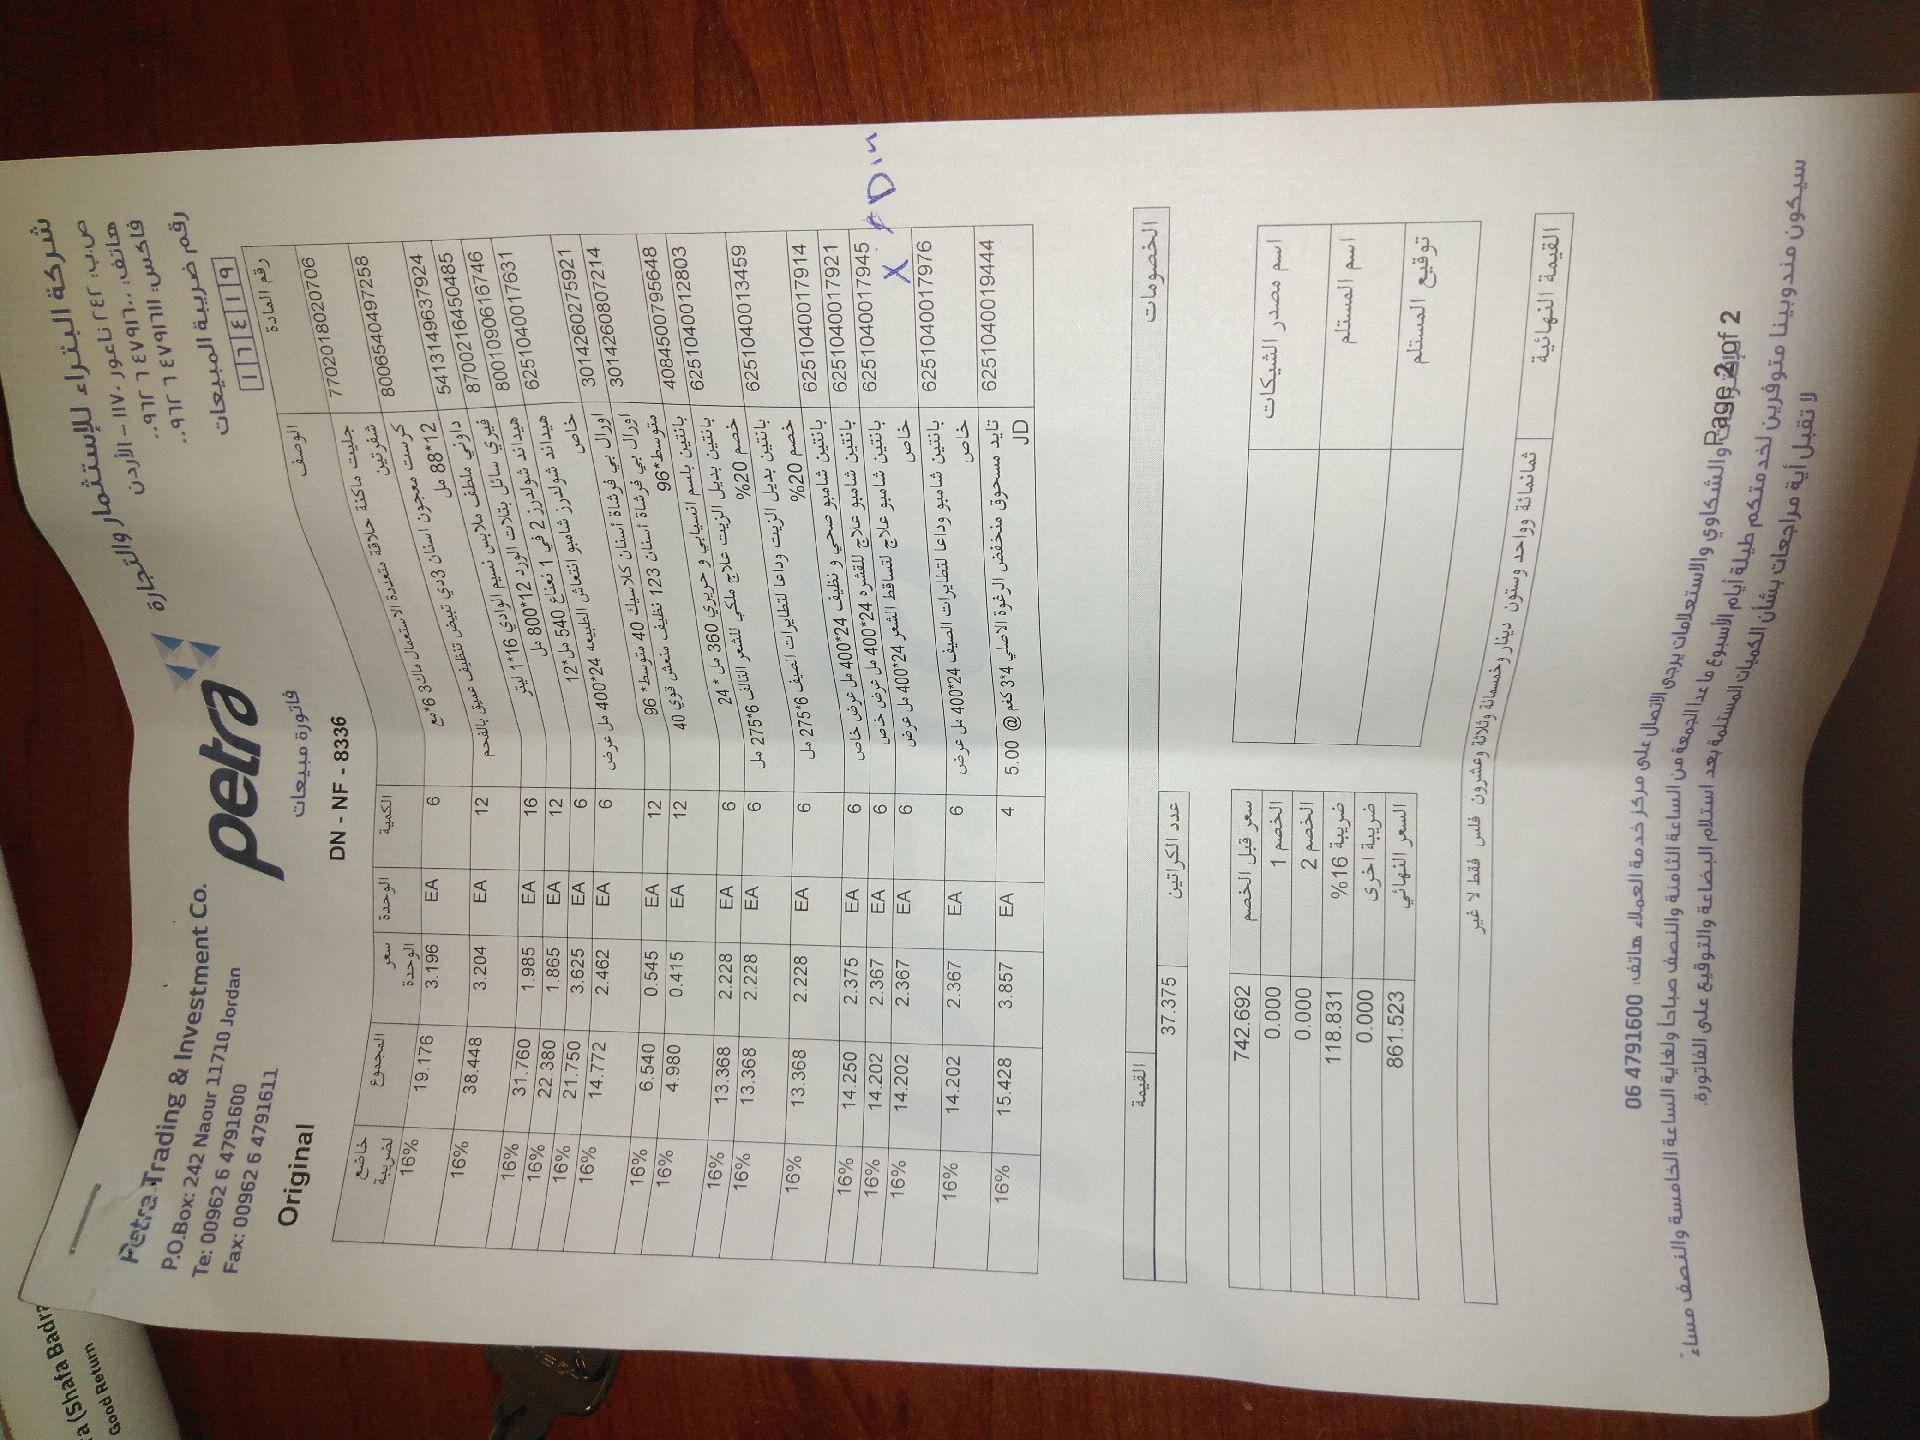 Petra Trading & Investment Co.
P.O.Box: 242 Naour 11710 Jordan
Te: 00962 6 4791600
Fax: 00962 6 4791611
petra
شركة البتراء للإستثمار والتجارة
ص.ب: ٢٤٢ ناعور ١١٧١٠ - الأردن
هاتف: ٤٧٩١٦٠٠ ٦ ٠٠٩٦٢
فاكس: ٤٧٩١٦١١ ٦ ٠٠٩٦٢
رقم ضريبة المبيعات
١٦٤١٩
Original
فاتورة مبيعات
DN - NF - 8336
رقم المادة الوصف الكمية الوحدة سعر الوحدة المجموع خاضع لضريبة
7702018020706 جليت ماكنة حلاقة متعددة الاستعمال ماك3 6*مع شفرتين 6 EA 3.196 19.176 16%
8006540497258 كرست معجون اسنان 3دي تبيض تنظيف عميق بالفحم 12*88 مل 12 EA 3.204 38.448 16%
5413149637924 داوني ملطف ملابس نسيم الوادي 16*1 ليتر 16 EA 1.985 31.760 16%
8700216450485 فيري سائل بتلات الورد 12*800 مل 12 EA 1.865 22.380 16%
8001090616746 هيداند شولدرز 2 في 1 نعناع 540 مل*12 6 EA 3.625 21.750 16%
6251040017631 هيداند شولدرز شامبو انتعاش الطبيعه 24*400 مل عرض خاص 6 EA 2.462 14.772 16%
3014260275921 اورال بي فرشاة أسنان كلاسيك 40 متوسط* 96 12 EA 0.545 6.540 16%
3014260807214 اورال بي فرشاة أسنان 123 نظيف منعش قوي 40 متوسط*96 12 EA 0.415 4.980 16%
4084500795648 بانتين بلسم انسيابي و حريري 360 مل * 24 6 EA 2.228 13.368 16%
6251040012803 بانتين بديل الزيت علاج ملكي للشعر التالف 6*275 مل خصم 20% 6 EA 2.228 13.368 16%
6251040013459 بانتين بديل الزيت وداعا لتطايرات الصيف 6*275 مل خصم 20% 6 EA 2.228 13.368 16%
6251040017914 بانتين شامبو صحي و نظيف 24*400 مل عرض خاص 6 EA 2.375 14.250 16%
6251040017921 بانتين شامبو علاج للقشره 24*400 مل عرض خاص 6 EA 2.367 14.202 16%
6251040017945 بانتين شامبو علاج لتساقط الشعر 24*400 مل عرض خاص 6 EA 2.367 14.202 16%
X
6251040017976 بانتين شامبو وداعا لتطايرات الصيف 24*400 مل عرض خاص 6 EA 2.367 14.202 16%
6251040019444 تايد مسحوق منخفض الرغوة الاصلي 4*3 كغم @ 5.00 JD 4 EA 3.857 15.428 16%
الخصومات القيمة
عدد الكراتين 37.375
سعر قبل الخصم 742.692
الخصم 1 0.000
الخصم 2 0.000
ضريبة 16% 118.831
ضريبة اخرى 0.000
السعر النهائي 861.523
اسم مصدر الشيكات
اسم المستلم
توقيع المستلم
القيمة النهائية
ثمانمائة وواحد وستون دينار وخمسمائة وثلاثة وعشرون فلس فقط لا غير
والشكاوي والاستعلامات يرجى الإتصال على مركز خدمة العملاء هاتف: 4791600 06
Page 2 of 2
سيكون مندوبينا متوفرين لخدمتكم طيلة أيام الأسبوع ما عدا الجمعة من الساعة الثامنة والنصف صباحاً ولغاية الساعة الخامسة والنصف مساءً
لا تقبل أية مراجعات بشأن الكميات المستلمة بعد استلام البضاعة والتوقيع على الفاتورة.
a (Shafa Badra
Good Return